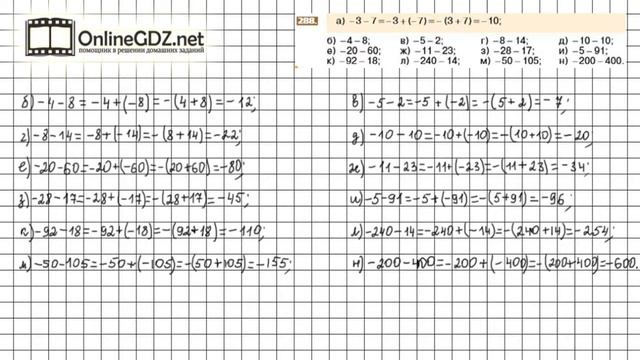 OnlineGDZ.net
помощник в решении домашних заданий
288.
а) –3 – 7 = –3 + (–7) = – (3 + 7) = –10;
б) –4 – 8; в) –5 – 2; г) –8 – 14; д) –10 – 10;
е) –20 – 60; ж) –11 – 23; з) –28 – 17; и) –5 – 91;
к) –92 – 18; л) –240 – 14; м) –50 – 105; н) –200 – 400.
б) -4-8 = -4+(-8) = -(4+8) = -12;
в) -5-2=-5+(-2)=-(5+2)=-7;
г) -8-14= -8+(-14)= -(8+14)=-22;
д) -10-10=-10+(-10)=-(10+10)=-20;
е) -20-60=-20+(-60)=-(20+60)=-80;
ж) -11-23=-11+(-23)=-(11+23)=-34;
з) -28-17=-28+(-17)=-(28+17)=-45;
и) -5-91=-5+(-91)=-(5+91)=-96;
к) -92-18=-92+(-18)=-(92+18)=-110;
л) -240-14=-240+(-14)=-(240+14)=-254;
м) -50-105=-50+(-105)=-(50+105)=-155;
н) -200-400=-200+(-400)=-(200+400)=-600.